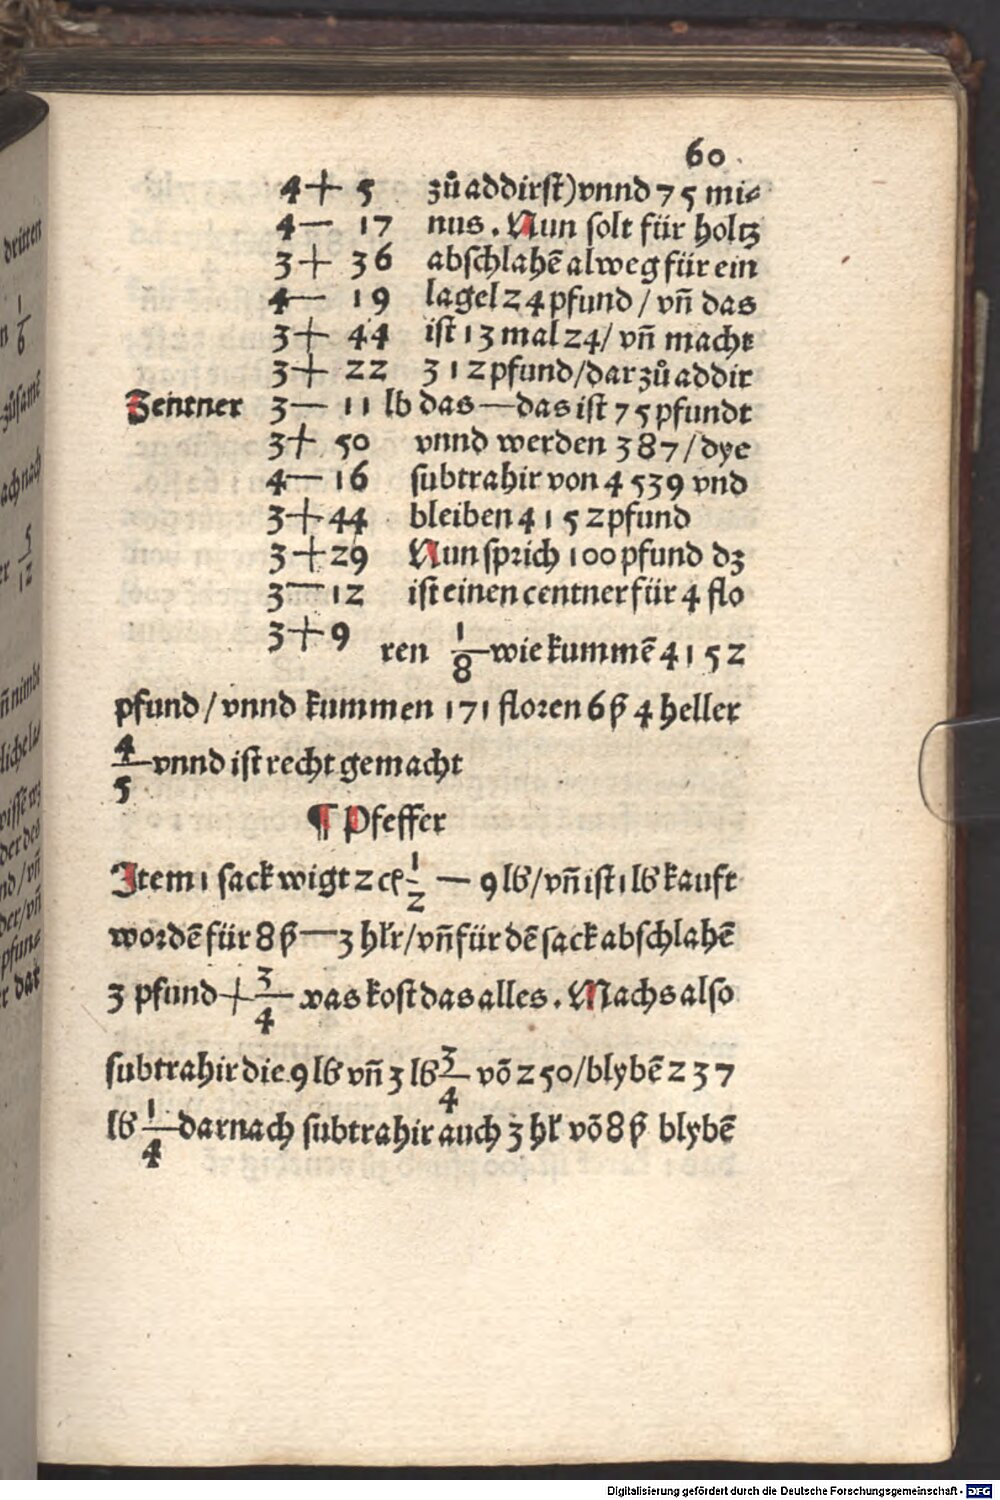 60
4 + 5 zů addirst) vnnd 75 mi⸗
4 — 17 nus. Nun solt für holtz
3 + 36 abschlahē alweg für ein
4 — 19 lagel 24 pfund / vñ das
3 + 44 ist 13 mal 24 / vñ macht
3 + 22 312 pfund / dar zů addir
Zentner 3 — 11 lb das — das ist 75 pfundt
3 + 50 vnnd werden 387 / dye
4 — 16 subtrahir von 4539 vnd
3 + 44 bleiben 4152 pfund
3 + 29 Nun sprich 100 pfund dz
3 — 12 ist einen centner für 4 flo
3 + 9 ren 1/8 wie kummē 4152
pfund / vnnd kummen 171 floren 6 ß 4 heller
4/5 vnnd ist recht gemacht
¶ Pfeffer
Item 1 sack wigt 2 cē 1/2 — 9 lb / vñ ist 1 lb kauft
wordē für 8 ß — 3 hlr / vñ für dē sack abschlahē
3 pfund + 3/4 was kost das alles. Machs also
subtrahir die 9 lb vñ 3 lb 3/4 vō 250 / blybē 237
lb 1/4 darnach subtrahir auch 3 hlr vō 8 ß blybē
dritten
1/6
zůsamē
nach
5/12
vñ nimbt
der des
nd / vñ
der / vñ
pfun⸗
r dar
Digitalisierung gefördert durch die Deutsche Forschungsgemeinschaft - DFG